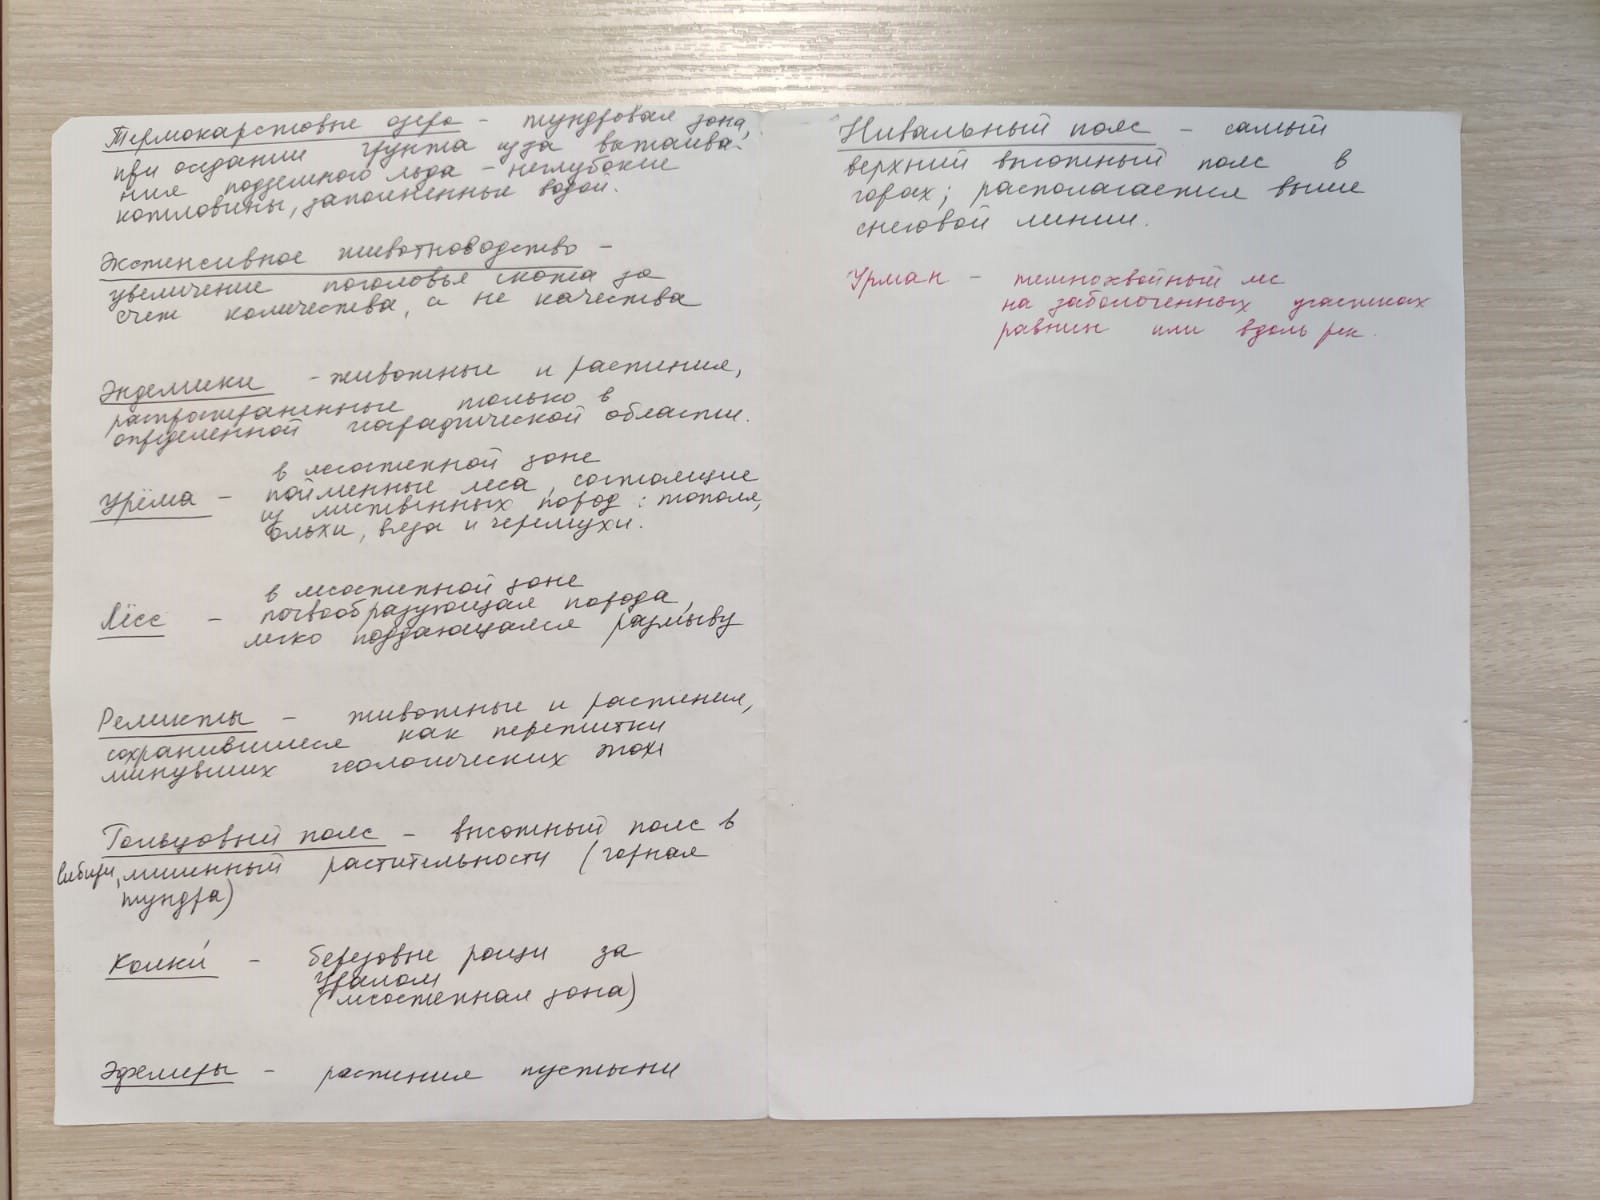 Термокарстовые озера - тундровая зона,
при оседании грунта из-за вытаива-
ния подземного льда - неглубокие
котловины, заполненные водой.
Экстенсивное животноводство -
увеличение поголовья скота за
счет количества, а не качества
Эндемики - животные и растения,
распространенные только в
определенной географической области.
в лесостепной зоне
Урёма - пойменные леса, состоящие
из лиственных пород: тополя,
ольхи, вяза и черемухи.
в лесостепной зоне
Лёсс - почвообразующая порода,
легко поддающаяся размыву
Реликты - животные и растения,
сохранившиеся как пережитки
минувших геологических эпох
Гольцовый пояс - высотный пояс в
Сибири, лишенный растительности (горная
тундра)
Колки́ - березовые рощи за
Уралом
(лесостепная зона)
Эфемеры - растения пустыни
Нивальный пояс - самый
верхний высотный пояс в
горах; располагается выше
снеговой линии.
Урман - темнохвойный лес
на заболоченных участках
равнин или вдоль рек.